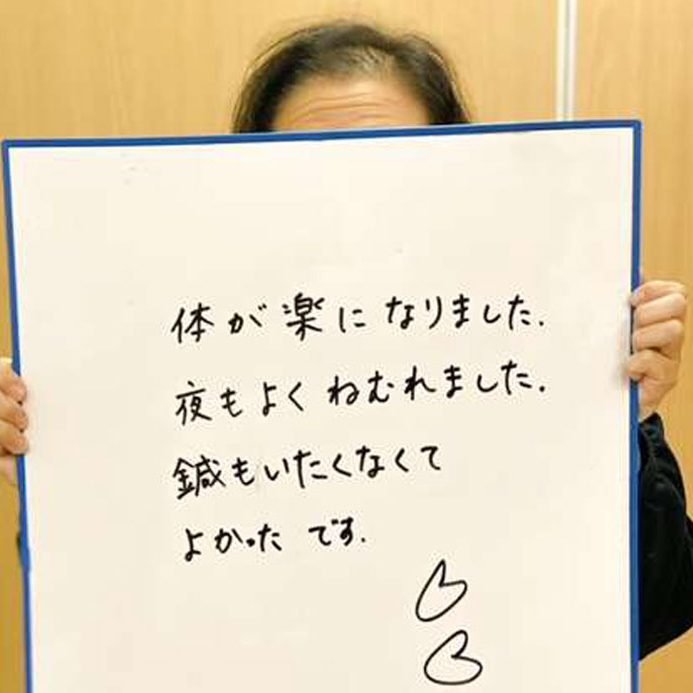 体が楽になりました.
夜もよくねむれました.
鍼もいたくなくて
よかったです.